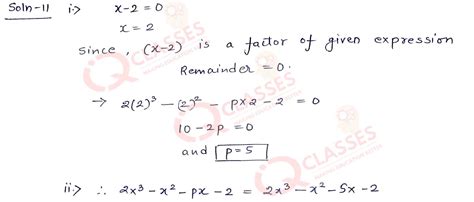 Soln-11 i> x-2=0
x=2
Since, (x-2) is a factor of given expression
Remainder = 0.
→ 2(2)³ - (2)² - p×2 - 2 = 0
10 - 2p = 0
and p=5
ii> ∴ 2x³ - x² - px - 2 = 2x³ - x² - 5x - 2
CLASSES
CLASSES